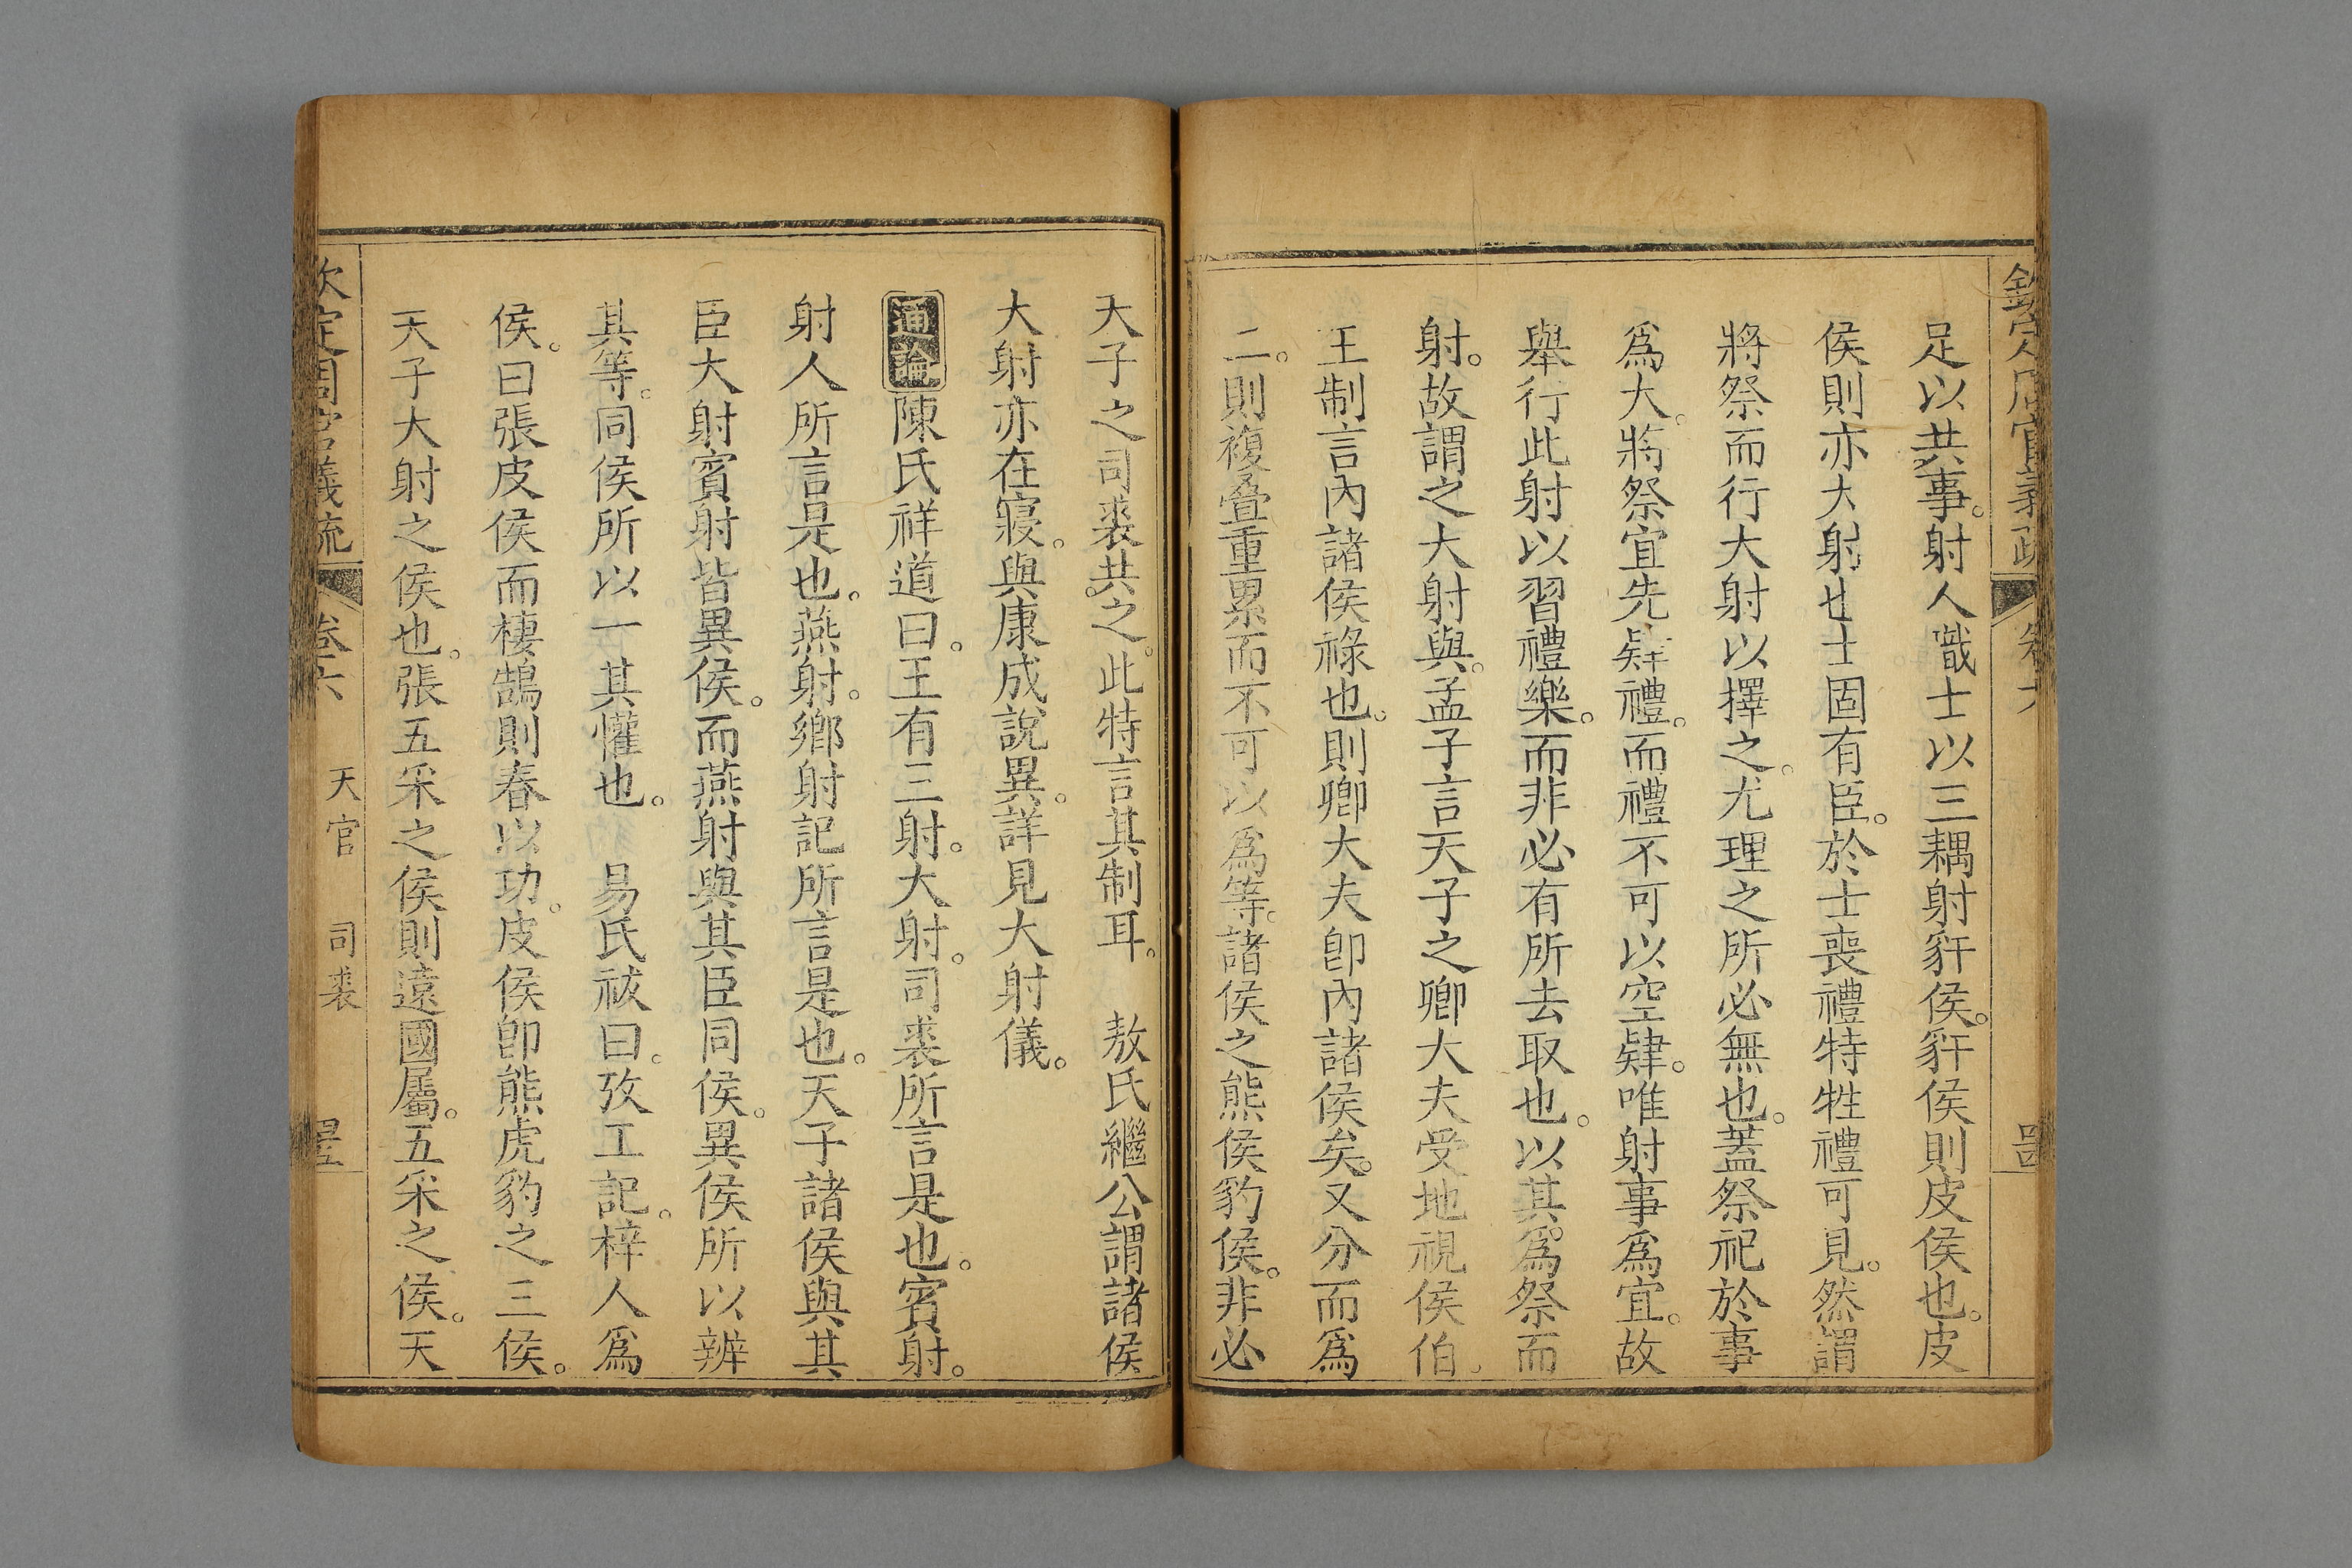 欽定周官義疏 卷六
足以共事。射人職士以三耦射豻侯。豻侯則皮侯也。皮
侯則亦大射也士固有臣。於士喪禮特牲禮可見。然謂
將祭而行大射以擇之。尤理之所必無也。蓋祭祀於事
爲大。將祭宜先肄禮。而禮不可以空肄。唯射事爲宜。故
舉行此射以習禮樂。而非必有所去取也。以其爲祭而
射。故謂之大射與。孟子言天子之卿大夫受地視侯伯。
王制言內諸侯祿也。則卿大夫卽內諸侯矣。又分而爲
二。則複疊重累而不可以爲等。諸侯之熊侯豹侯。非必
天子之司裘共之。此特言其制耳。 敖氏繼公謂諸侯
大射亦在寢。與康成說異。詳見大射儀。
通論陳氏祥道曰。王有三射。大射。司裘所言是也。賓射。
射人所言是也。燕射。鄉射記所言是也。天子諸侯與其
臣大射賓射皆異侯。而燕射與其臣同侯。異侯所以辨
其等。同侯所以一其懽也。 易氏祓曰。攷工記。梓人爲
侯。曰張皮侯而棲鵠則春以功。皮侯卽熊虎豹之三侯。
天子大射之侯也。張五采之侯則遠國屬。五采之侯。天
欽定周官義疏 卷六 天官 司裘